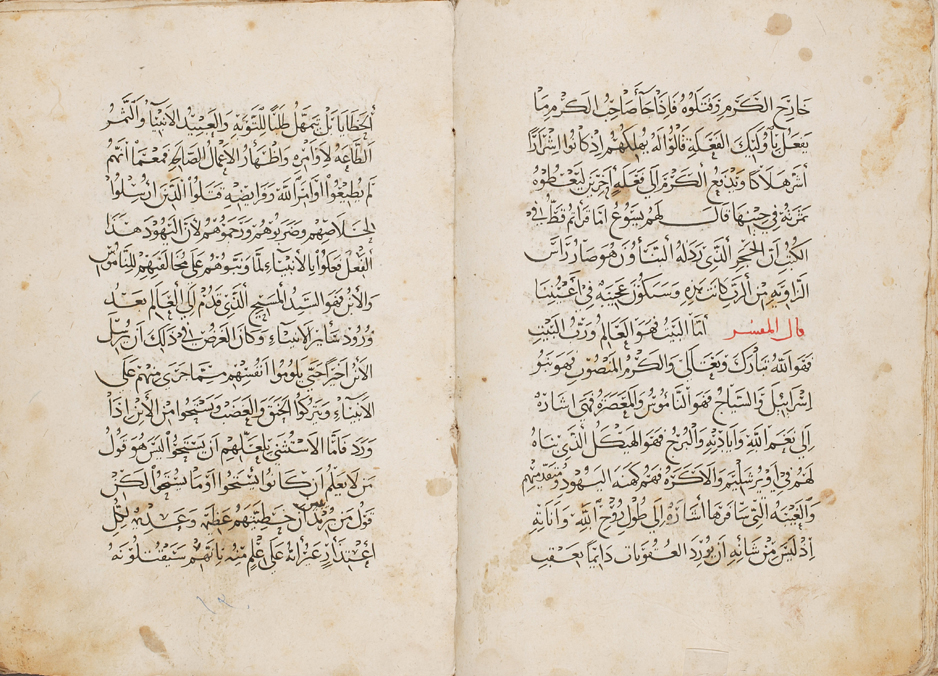 خارج الكرم وقتلوه فاذا جا صاحب الكرم ما
يفعل باولئك الفعلة قالوا له يهلكهم اذ كانوا اشرارًا
اشر هلاكًا ويدفع الكرم الى فعله اخرين ليعطوه
ثمرته في حينها قال لهم يسوع اما قراتم قط في
الكتب ان الحجر الذي رذله البناؤون هو صار راس
الزاويه من الرب كانت هذه وهي عجيبه في اعيننا
قال المفسر اما البيت فهو العالم ورب البيت
فهو الله تبارك وتعالى والكرم المنصوب فهو بنو
اسرائيل والسياج فهو الناموس والمعصرة فهي اشارة
الى نعم الله واياديه والبرج فهو الهيكل الذي بناه
لهم في اورشليم والاكرة فهم كهنة اليهود ومتقدميهم
والغيبه التي سافرها اشارة الى طول روح الله واناته
اذ ليس من شانه ان يورد العقوبات دائما بعقب
الخطايا بل يتمهل طلبًا للتوبه والعبيد الانبيا والثمر
الطاعه لاوامره واظهار الاعمال الصالحه فمع ما انهم
لم يطيعوا اوامر الله وفرايضه قتلوا الذين ارسلوا
لخلاصهم وضربوهم ورجموهم لان اليهود هذا
الفعل فعلوا بالانبياء لما ونبوهم على مخالفتهم للناموس
والابن فهو السيد المسيح الذي قدم الى العالم بعد
ورود سائر الانبياء وكان الغرض في ذلك ان يرسل
الابن اخرًا حتى يلوموا انفسهم مما جرى منهم على
الانبياء ويتركوا الحنق والغضب ويستحيوا من الابن اذا
ورد فاما الاستثنى بلعلهم ان يستحيوا ليس هو قول
من لا يعلم ان كانوا يستحيوا او ما يستحيوا لكن
قول من يريد ان يبين خطيتهم عظيمه وعديمة لكل
اعتذار غير انه على علم منه بانهم سيقتلونه